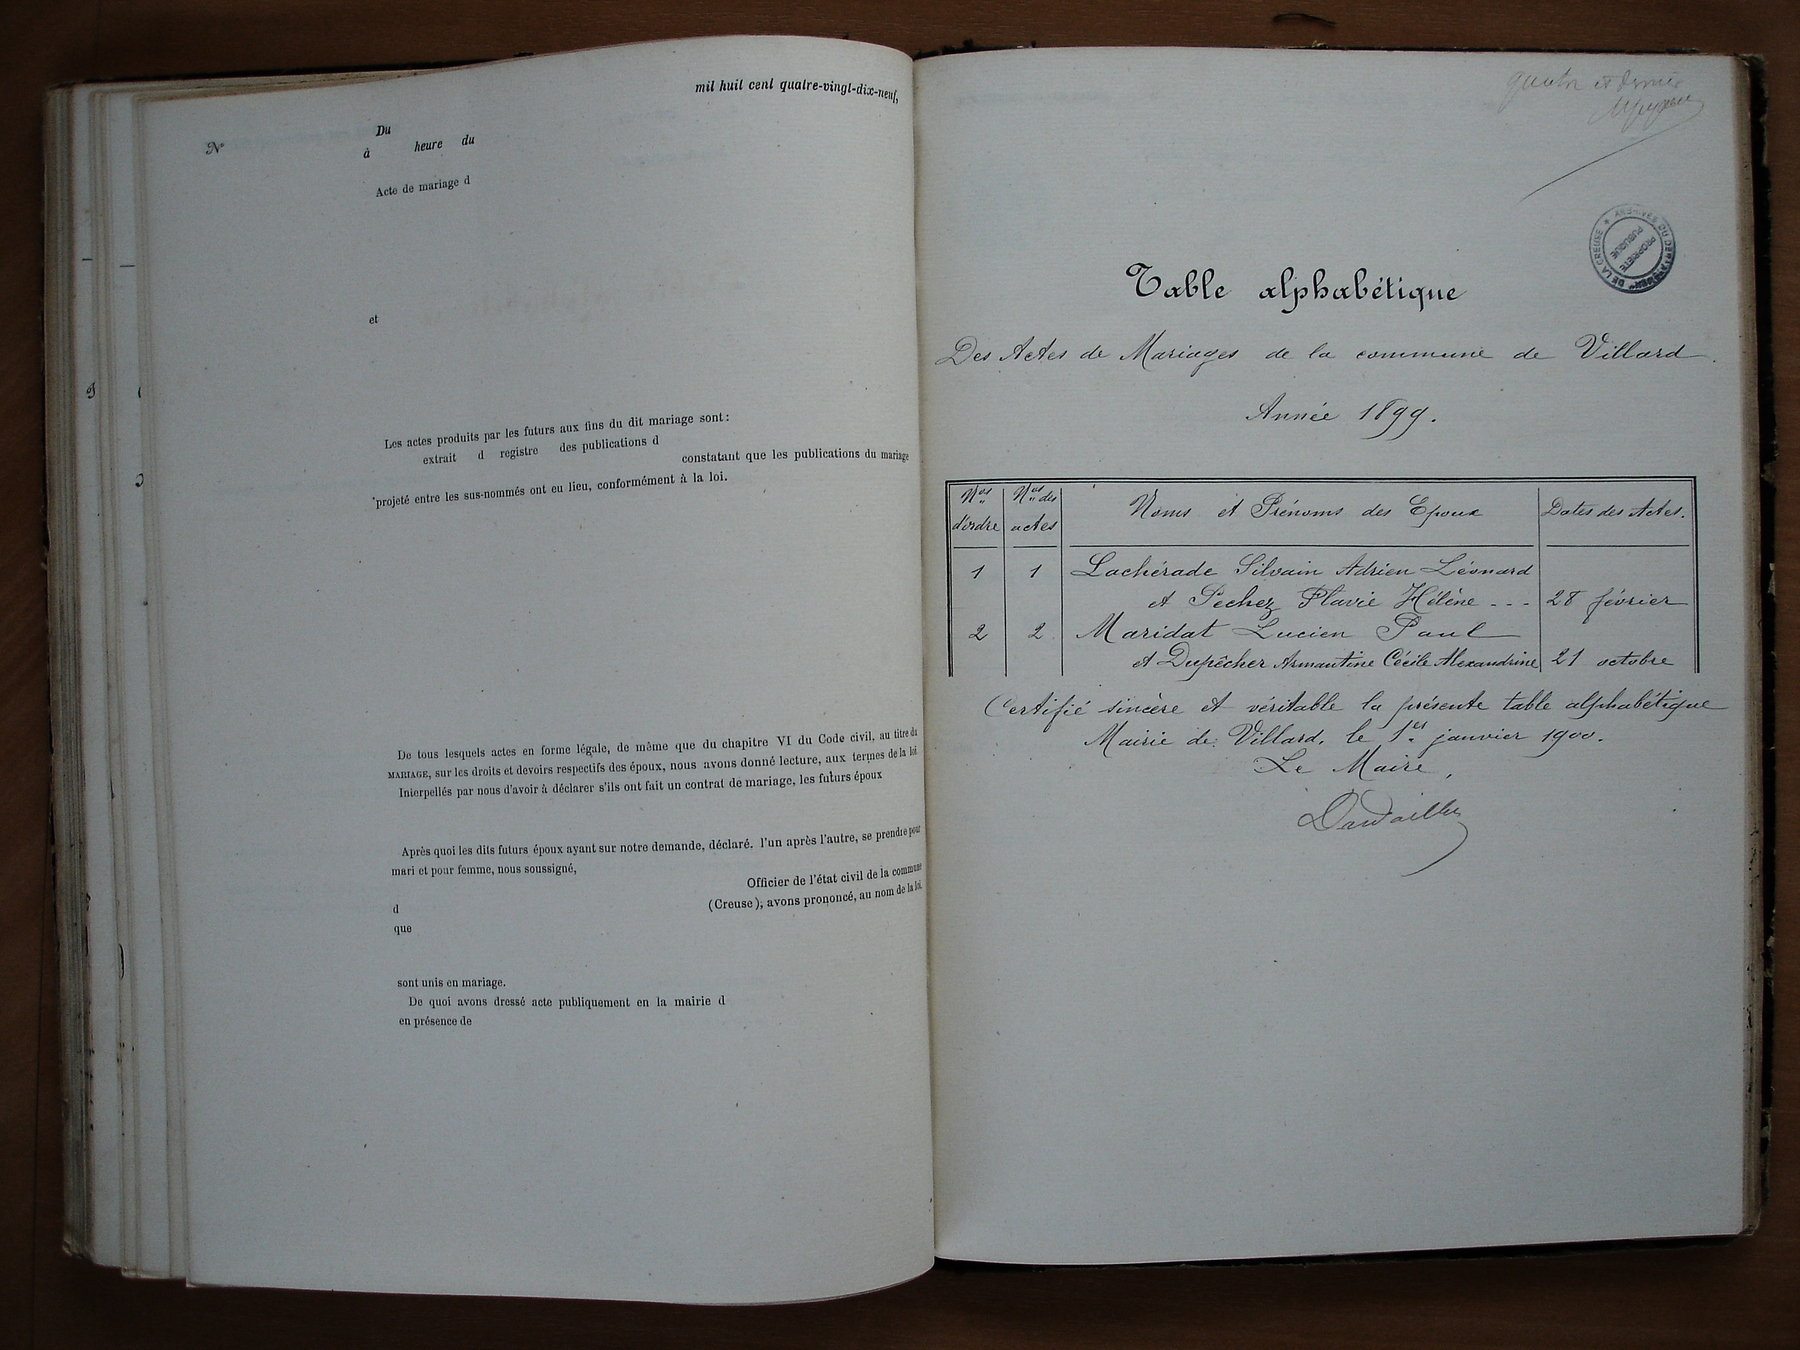 mil huit cent quatre-vingt-dix-neuf,
N°
Du
à heure du
Acte de mariage d
et
Les actes produits par les futurs aux fins du dit mariage sont :
extrait d registre des publications d
constatant que les publications du mariage
projeté entre les sus-nommés ont eu lieu, conformément à la loi.
De tous lesquels actes en forme légale, de même que du chapitre VI du Code civil, au titre du
MARIAGE, sur les droits et devoirs respectifs des époux, nous avons donné lecture, aux termes de la loi
Interpellés par nous d'avoir à déclarer s'ils ont fait un contrat de mariage, les futurs époux
Après quoi les dits futurs époux ayant sur notre demande, déclaré. l'un après l'autre, se prendre pour
mari et pour femme, nous soussigné,
Officier de l'état civil de la commune
d (Creuse), avons prononcé, au nom de la loi,
que
sont unis en mariage.
De quoi avons dressé acte publiquement en la mairie d
en présence de
quatre et dernier
ARCHIVES DU DÉPARTEMENT DE LA CREUSE
PROPRIÉTÉ
PUBLIQUE
Table alphabétique
Des Actes de Mariages de la commune de Villard.
Année 1899.
Nos d'ordre Nos des actes Noms et Prénoms des Epoux Dates des Actes.
1 1 Lachérade Silvain Adrien Léonard
et Pechez Flavie Hélène --- 28 février
2 2 Maridat Lucien Paul
et Dupêcher Armantine Cécile Alexandrine 21 octobre
Certifié sincère et véritable la présente table alphabétique
Mairie de Villard, le 1er janvier 1900.
Le Maire,